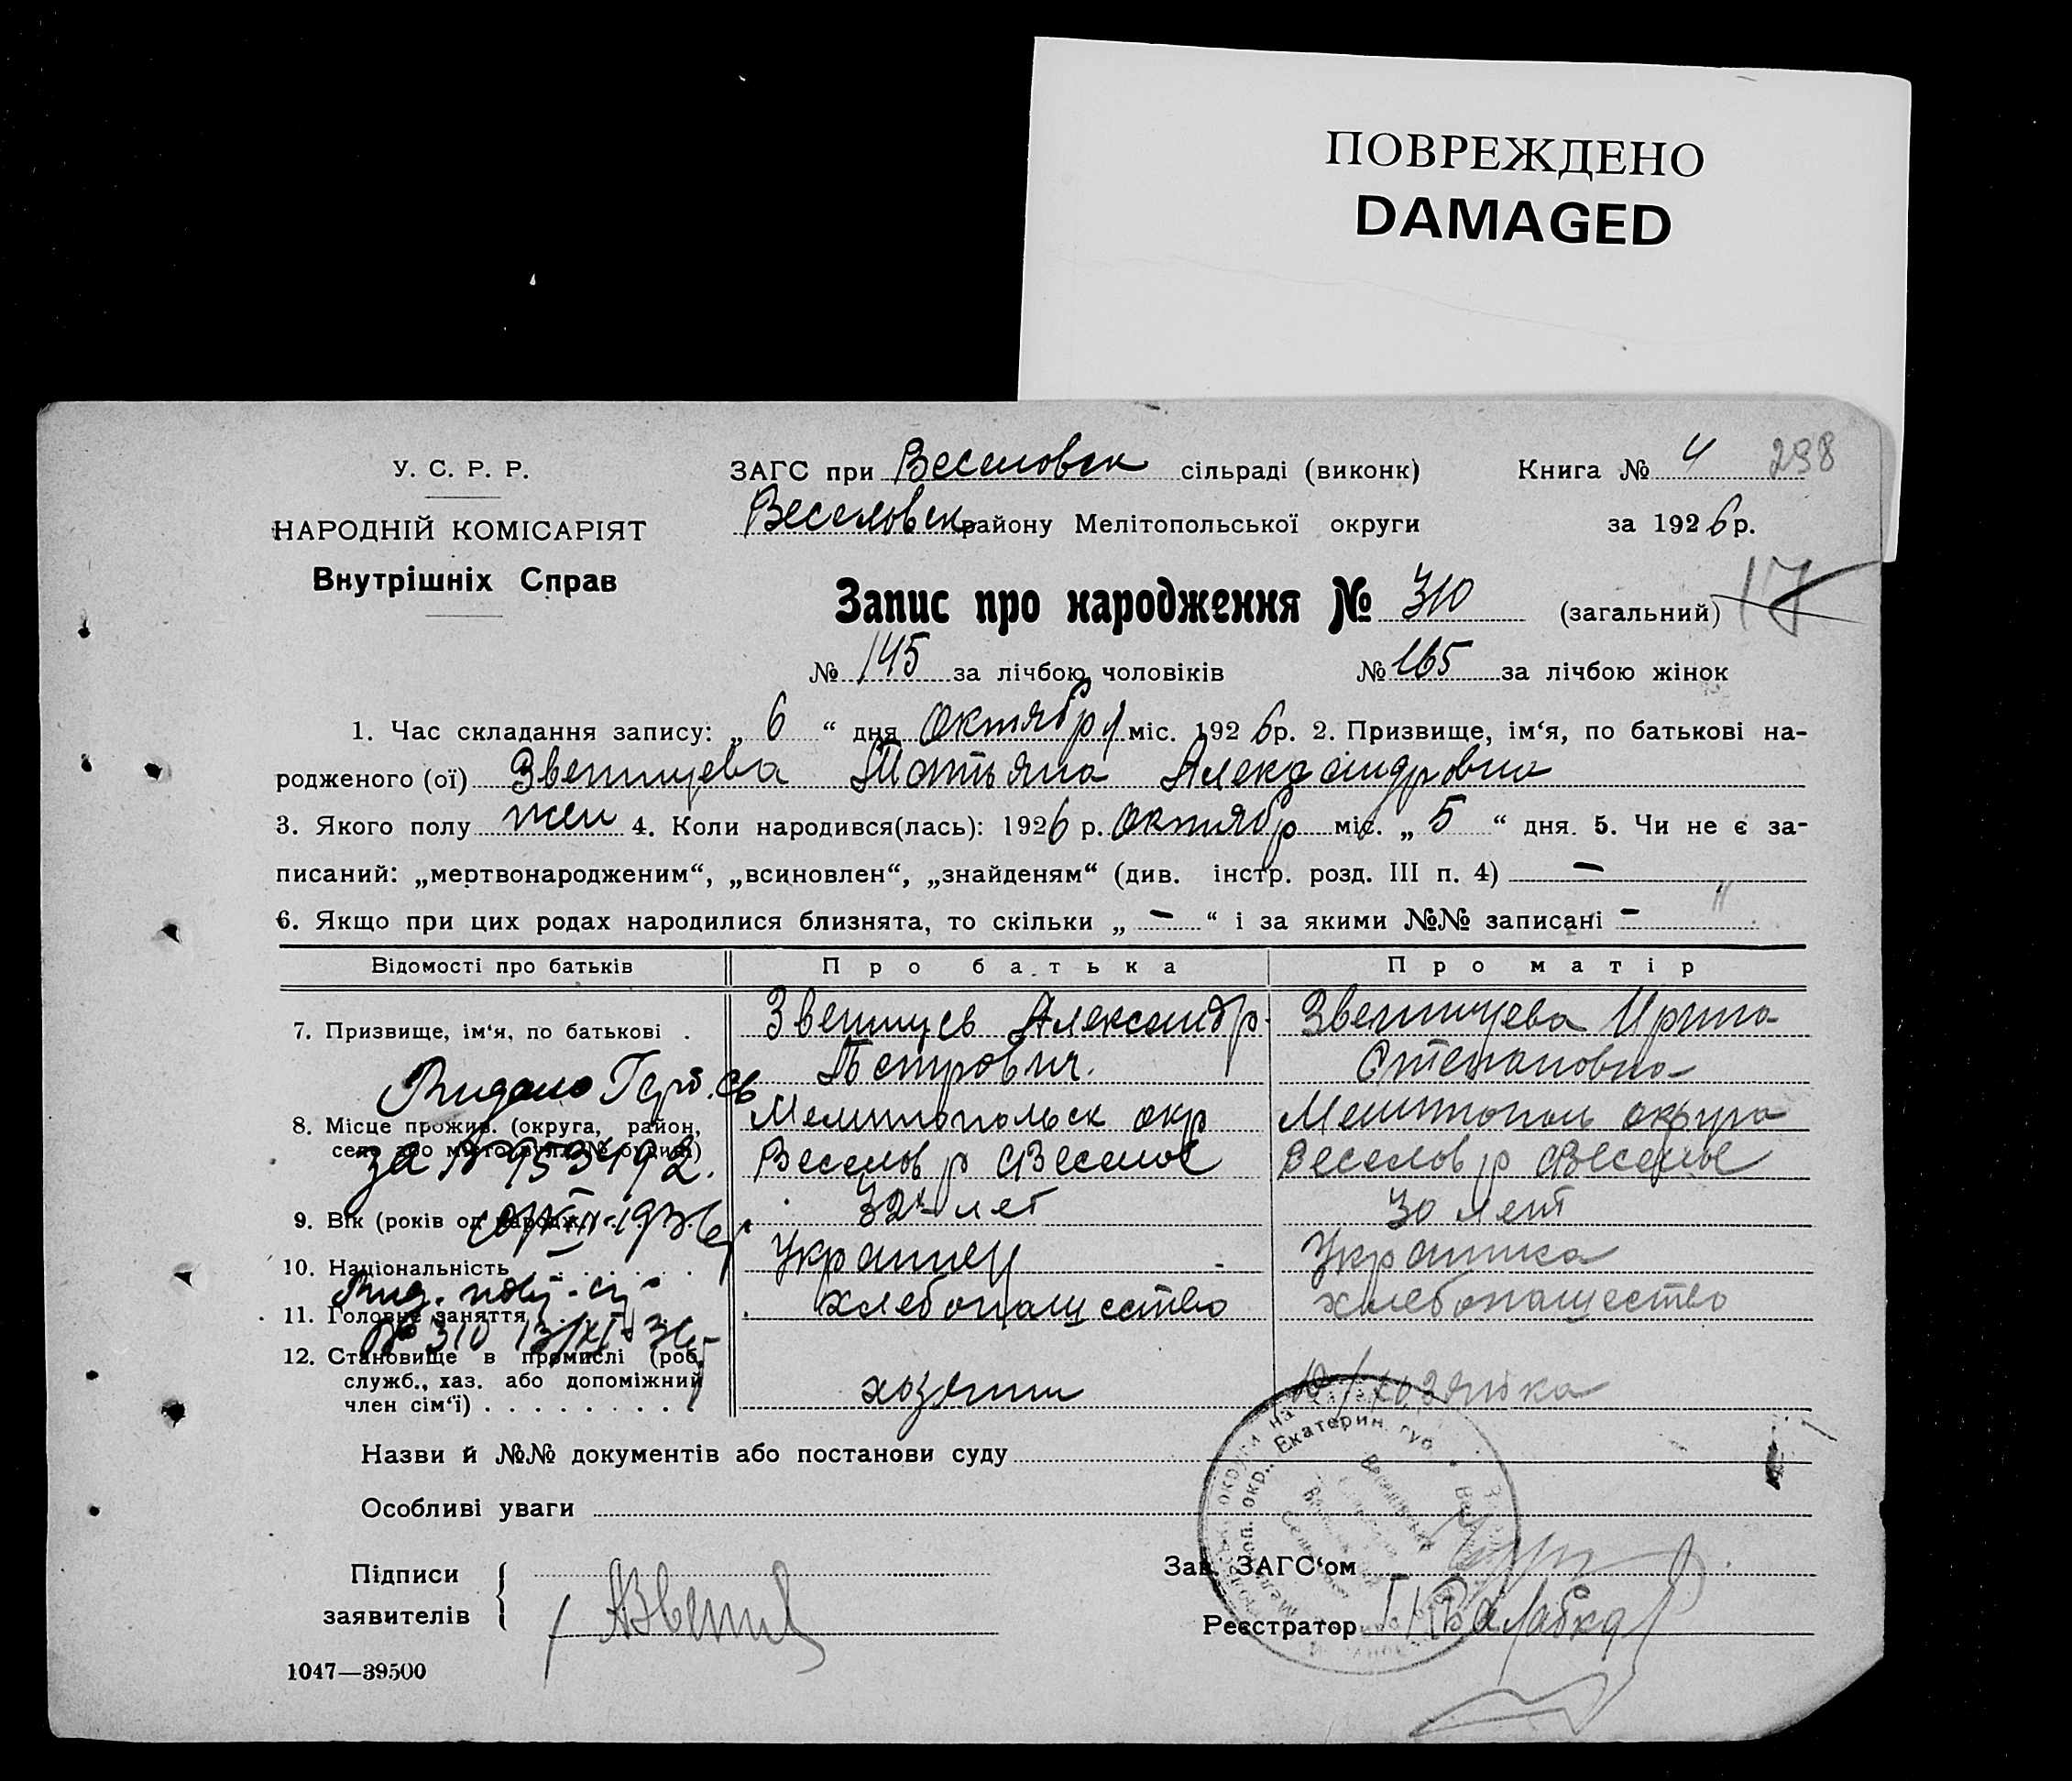 ПОВРЕЖДЕНО
DAMAGED
У. С. Р. Р.
НАРОДНІЙ КОМІСАРІЯТ
Внутрішніх Справ
ЗАГС при Веселовск сільраді (виконк)
Веселовск району Мелітопольської округи
Книга № 4 298
за 1926 р.
Запис про народження № 310 (загальний) 17
№ 145 за лічбою чоловіків № 165 за лічбою жінок
1. Час складання запису: „ 6 “ дня октября міс. 1926 р. 2. Призвище, ім‘я, по батькові на-
родженого (ої) Татьяна Александровна
3. Якого полу жен 4. Коли народився(лась): 1926 р. октябр міс. „ 5 “ дня. 5. Чи не є за-
писаний: „мертвонародженим“, „всиновлен“, „знайденям“ (див. інстр. розд. III п. 4) —
6. Якщо при цих родах народилися близнята, то скільки „ — “ і за якими №№ записані —
Відомості про батьків Про батька Про матір
7. Призвище, ім‘я, по батькові . Александр Ирина
Петрович. Степановна
Видано
8. Місце прожив. (округа, район, Мелитопольск окр Мелитополь округа
село або місто, вул. № будинк) Веселов р с Веселое Веселов р с Веселое
за № 953492.
9. Вік (років од народж.) 32 лет 30 лет
1936 р
10. Національність . . . . . . . Украинец Украинка
11. Головне заняття хлебопашество хлебопашество
№ 310 13/XI-36
12. Становище в промислі (роб.,
служб., хаз. або допоміжний
член сім‘ї) . . . . . . . . . хозяин хозяйка
Назви й №№ документів або постанови суду
Особливі уваги
Підписи
заявителів
Зав. ЗАГС‘ом
Реєстратор
Екатерин. губ.
1047—39500